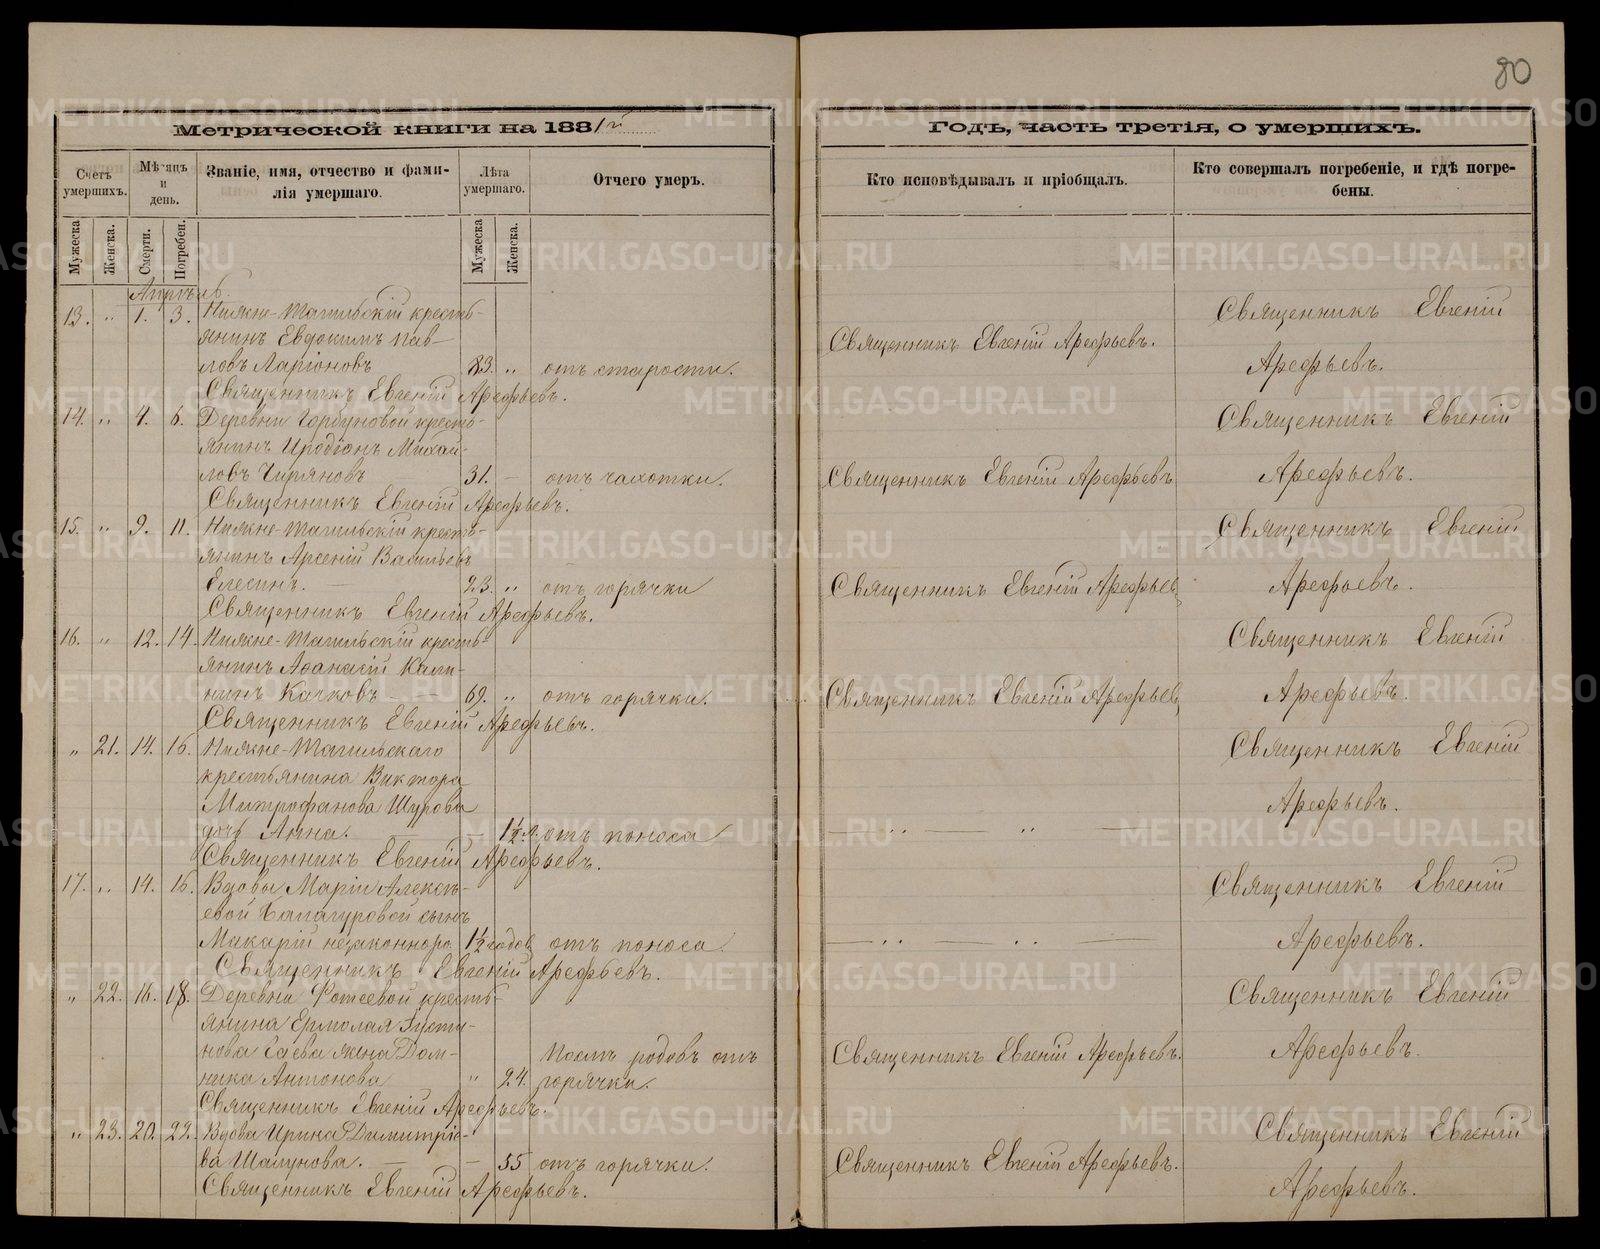 80
Метрической книги на 1881й
Годъ, часть третія, о умершихъ.
Счетъ умершихъ.
Мѣсяцъ и день.
Званіе, имя, отчество и фами-
лія умершаго.
Лѣта умершаго.
Отчего умеръ.
Кто исповѣдывалъ и пріобщалъ.
Кто совершалъ погребеніе, и гдѣ погре-
бены.
Мужеска
Женска.
Смерти.
Погребен.
Мужеска
Женска.
Апрѣль.
13. " 1. 3. Нижне-Тагильскій кресть-
янинъ Евдокимъ Пав-
ловъ Ларіоновъ 83. " отъ старости.
Священникъ Евгеній Арефьевъ.
Священникъ Евгеній Арефьевъ.
Священникъ Евгеній
Арефьевъ.
14. " 4. 6. Деревни Горбуновой кресть-
янинъ Иродіонъ Михай-
ловъ 31. - отъ чахотки.
Священникъ Евгеній Арефьевъ.
Священникъ Евгеній Арефьевъ
Священникъ Евгеній
Арефьевъ.
15. " 9. 11. Нижне-Тагильскій кресть-
янинъ Арсеній Васильевъ
Елесинъ. 23. " отъ горячки
Священникъ Евгеній Арефьевъ.
Священникъ Евгеній Арефьевъ
Священникъ Евгеній
Арефьевъ.
16. " 12. 14. Нижне-Тагильскій кресть-
янинъ Аѳанасій Кали-
нинъ Качковъ 69. " отъ горячки.
Священникъ Евгеній Арефьевъ.
Священникъ Евгеній Арефьевъ
Священникъ Евгеній
Арефьевъ.
" 21. 14. 16. Нижне-Тагильскаго
крестьянина Виктора
Митрофанова Шурова
дочь Анна. - 1½ л. отъ поноса
Священникъ Евгеній Арефьевъ.
Священникъ Евгеній
Арефьевъ.
17. " 14. 16. Вдовы Маріи Алексѣ-
евой сынъ
Макарій незаконноро 1½ годов отъ поноса.
Священникъ Евгеній Арефьевъ.
Священникъ Евгеній
Арефьевъ.
" 22. 16. 18. Деревни Фотеевой кресть-
янина Ермолая Густи-
нова Гаева жена Дом-
ника Антонова " 24. Послѣ родовъ отъ
горячки.
Священникъ Евгеній Арефьевъ.
Священникъ Евгеній Арефьевъ.
Священникъ Евгеній
Арефьевъ.
" 23. 20. 22. Вдова Ирина Димитріе-
ва Шалунова. - 55 отъ горячки.
Священникъ Евгеній Арефьевъ.
Священникъ Евгеній Арефьевъ.
Священникъ Евгеній
Арефьевъ.
METRIKI.GASO-URAL.RU